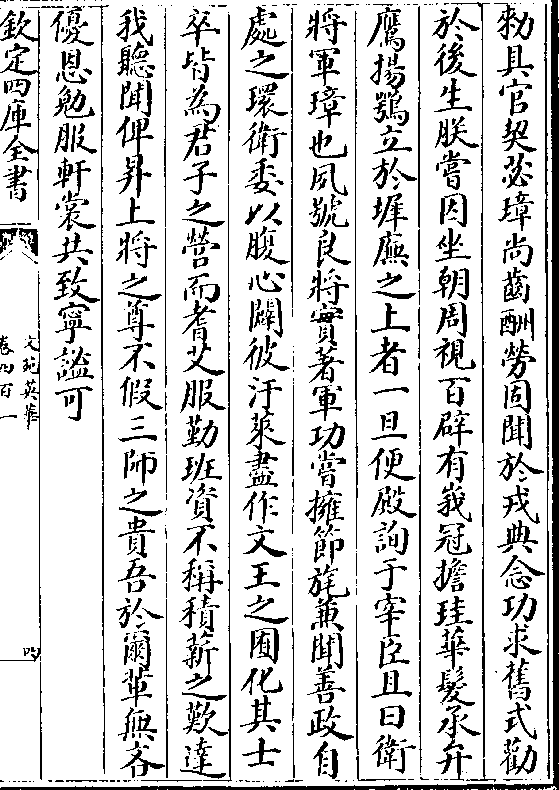 勅具官契苾璋尚齒酬勞固聞於戎典念功求舊式勸
於後生朕嘗因坐朝周視百辟有峩冠擔珪華髮承弁
鷹揚鶚立於墀廡之上者一旦便殿詢于宰臣且曰衛
將軍璋也夙號良將實著軍功嘗擁節旄兼聞善政自
處之環衛委以腹心闢彼汙萊盡作文王之囿化其士
卒皆為君子之營而耆艾服勤班資不稱積薪之歎達
我聽聞俾昇上將之尊不假三師之貴吾於爾輩無吝
優恩勉服軒裳共致寧謐可
欽定四庫全書
文苑英華
卷四百一
四